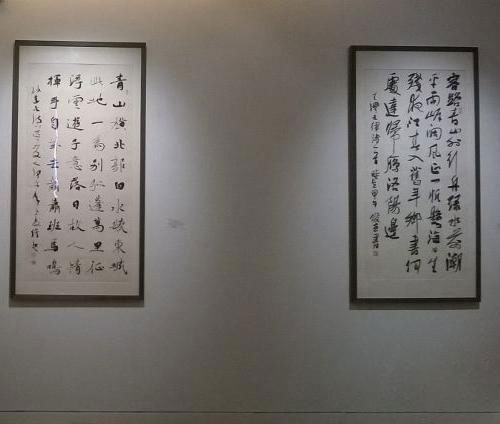 客路青山外行舟綠水前潮
平兩岸闊風正一帆懸海日生
殘夜江春入舊年鄉書何
處達歸雁洛陽邊
青山橫北郭白水繞東城
此地一為別孤蓬萬里征
浮雲遊子意落日故人情
揮手自茲去蕭蕭班馬鳴